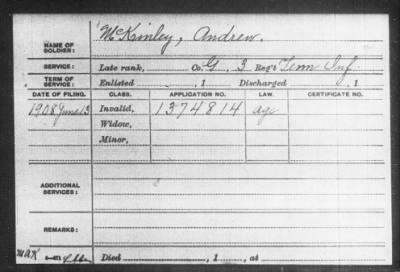 McKinley, Andrew.
NAME OF SOLDIER:
SERVICE: Late rank, Co. G, 3 Reg't Tenn Inf
TERM OF SERVICE: Enlisted , 1 Discharged , 1
DATE OF FILING. CLASS. APPLICATION NO. LAW. CERTIFICATE NO.
1908 June 13 Invalid, 1374814 age
Widow,
Minor,
ADDITIONAL SERVICES:
REMARKS:
Died , 1 , at